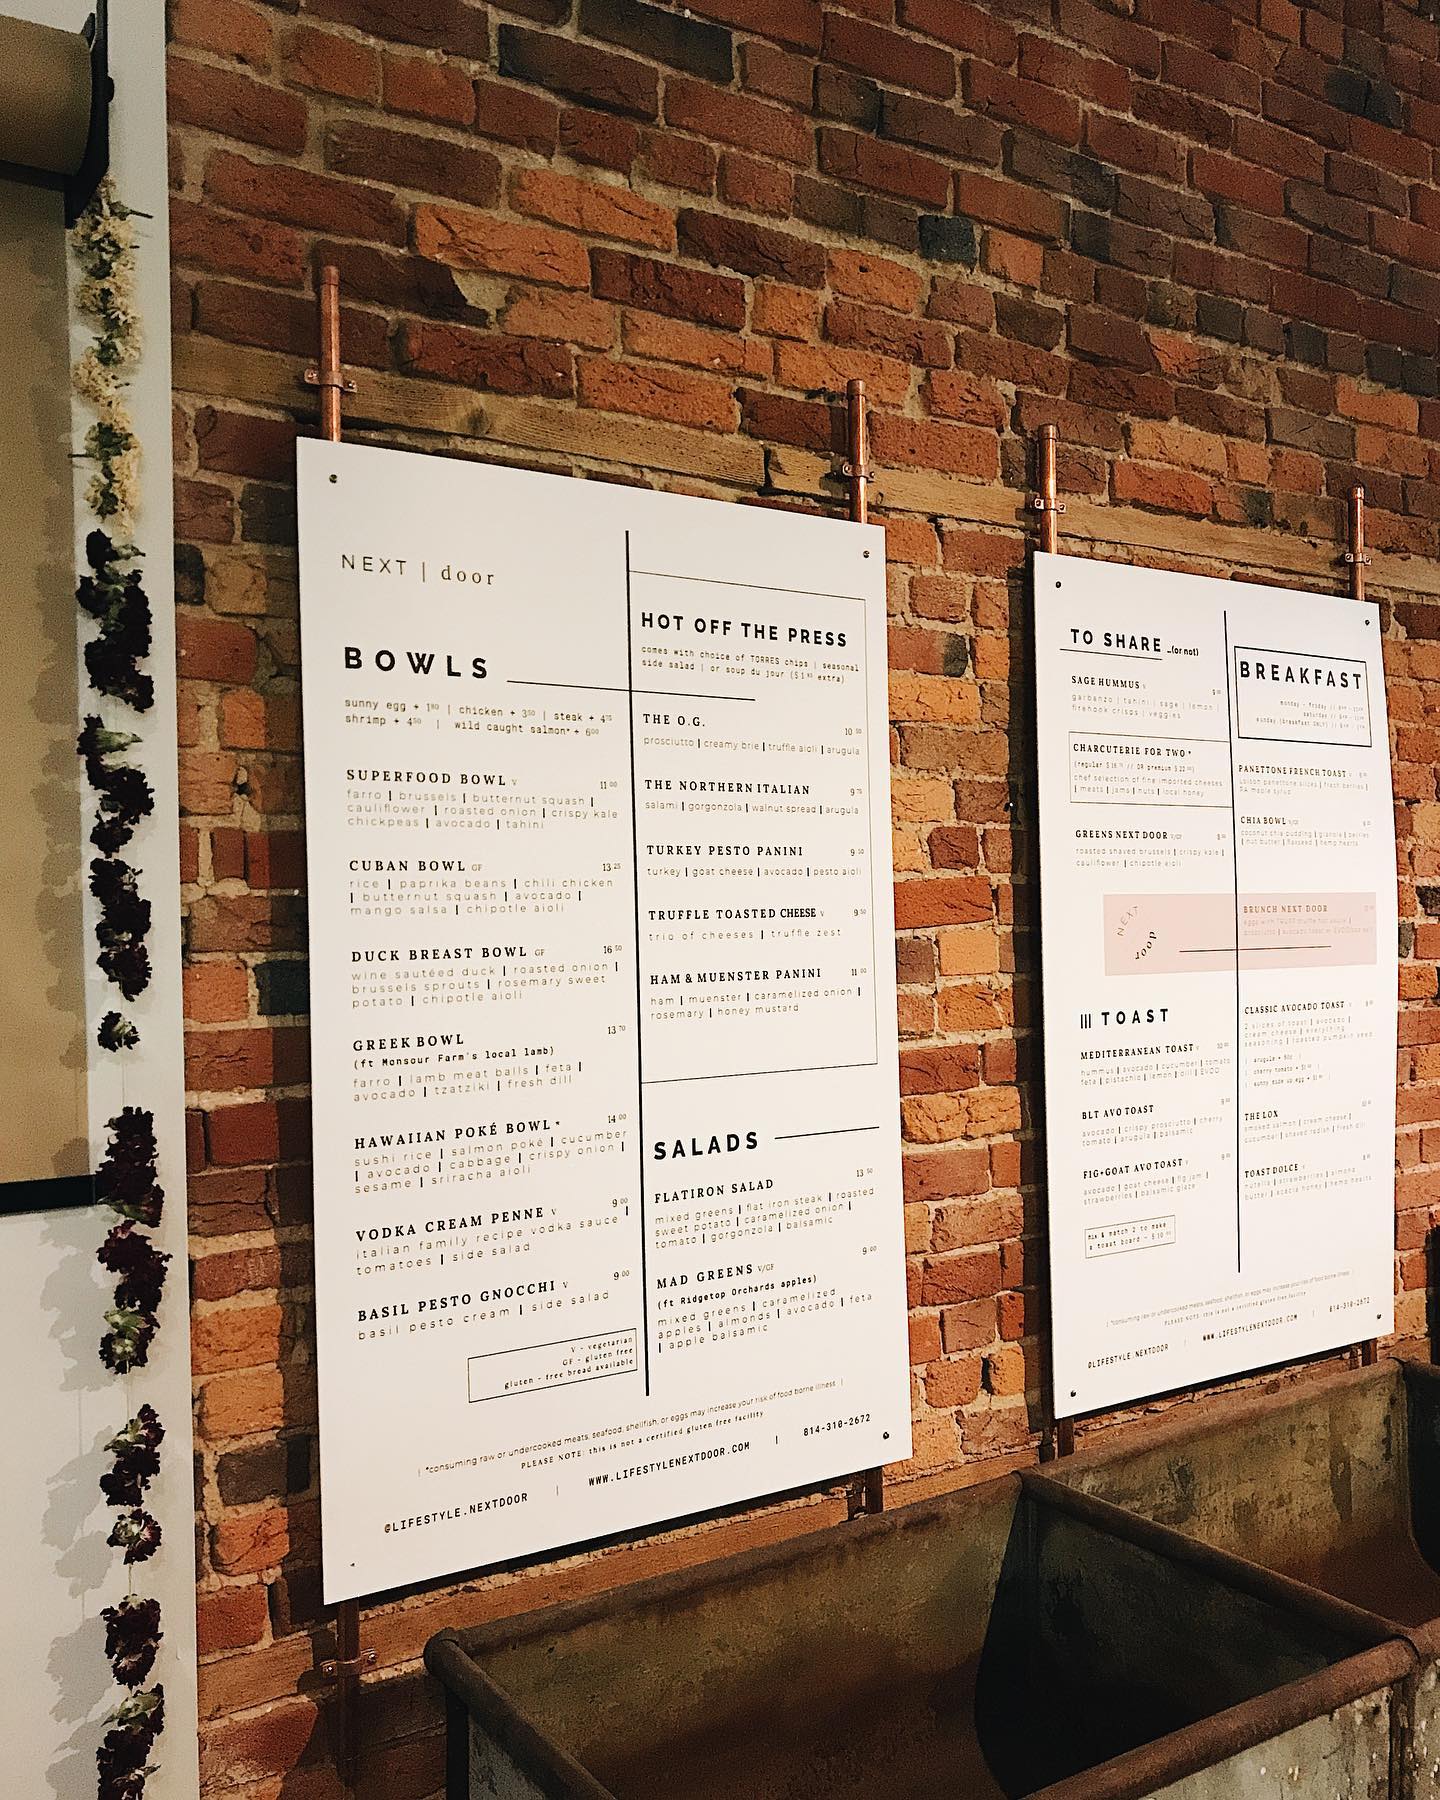 NEXT | door
BOWLS
sunny egg + 1⁸⁰ | chicken + 3⁵⁰ | steak + 4⁷⁵
shrimp + 4⁵⁰ | wild caught salmon* + 6⁰⁰
SUPERFOOD BOWL V 11⁰⁰
farro | brussels | butternut squash |
cauliflower | roasted onion | crispy kale
chickpeas | avocado | tahini
CUBAN BOWL GF 13²⁵
rice | paprika beans | chili chicken
| butternut squash | avocado |
mango salsa | chipotle aioli
DUCK BREAST BOWL GF 16⁵⁰
wine sautéed duck | roasted onion |
brussels sprouts | rosemary sweet
potato | chipotle aioli
GREEK BOWL 13⁷⁰
(ft Monsour Farm's local lamb)
farro | lamb meat balls | feta |
avocado | tzatziki | fresh dill
HAWAIIAN POKÉ BOWL* 14⁰⁰
sushi rice | salmon poké | cucumber
| avocado | cabbage | crispy onion |
sesame | sriracha aioli
VODKA CREAM PENNE V 9⁰⁰
italian family recipe vodka sauce |
tomatoes | side salad
BASIL PESTO GNOCCHI V 9⁰⁰
basil pesto cream | side salad
V - vegetarian
GF - gluten free
gluten - free bread available
HOT OFF THE PRESS
comes with choice of TORRES chips | seasonal
side salad | or soup du jour ($1 extra)
THE O.G. 10⁵⁰
prosciutto | creamy brie | truffle aioli | arugula
THE NORTHERN ITALIAN 9⁷⁵
salami | gorgonzola | walnut spread | arugula
TURKEY PESTO PANINI 9⁵⁰
turkey | goat cheese | avocado | pesto aioli
TRUFFLE TOASTED CHEESE V 9⁵⁰
trio of cheeses | truffle zest
HAM & MUENSTER PANINI 11⁰⁰
ham | muenster | caramelized onion |
rosemary | honey mustard
SALADS
FLATIRON SALAD 13⁵⁰
mixed greens | flat iron steak | roasted
sweet potato | caramelized onion |
tomato | gorgonzola | balsamic
MAD GREENS V/GF 9⁰⁰
(ft Ridgetop Orchards apples)
mixed greens | caramelized
apples | almonds | avocado | feta
| apple balsamic
| *consuming raw or undercooked meats, seafood, shellfish, or eggs may increase your risk of food borne illness |
PLEASE NOTE: this is not a certified gluten free facility
@LIFESTYLE.NEXTDOOR | WWW.LIFESTYLENEXTDOOR.COM | 814-310-2672
TO SHARE ...(or not)
SAGE HUMMUS V
garbanzo | tahini | sage | lemon |
firehook crisps | veggies
CHARCUTERIE FOR TWO*
(regular $16 // OR premium $22)
chef selection of fine imported cheeses
| meats | jams | nuts | local honey
GREENS NEXT DOOR V/GF
roasted shaved brussels | crispy kale |
cauliflower | chipotle aioli
NEXT door
||| TOAST
MEDITERRANEAN TOAST V
hummus | avocado | cucumber | tomato
feta | pistachio | lemon | dill | EVOO
BLT AVO TOAST
avocado | crispy prosciutto | cherry
tomato | arugula | balsamic
FIG+GOAT AVO TOAST V
avocado | goat cheese | fig jam |
strawberries | balsamic glaze
mix & match 2 to make
a toast board - $10
BREAKFAST
monday - friday //
saturday //
sunday (breakfast ONLY) //
PANETTONE FRENCH TOAST V
panettone slices | fresh berries |
PA maple syrup
CHIA BOWL V/GF
coconut chia pudding | granola | berries
| nut butter | flaxseed | hemp hearts
BRUNCH NEXT DOOR
CLASSIC AVOCADO TOAST V
2 slices of toast | avocado |
cream cheese | everything
seasoning | roasted pumpkin seed
| arugula + 50¢ |
| cherry tomato + $1 |
| sunny side up egg + $1 |
THE LOX
smoked salmon | cream cheese |
cucumber | shaved radish | fresh dill
TOAST DOLCE V
nutella | strawberries | almond
butter | acacia honey | hemp hearts
| *consuming raw or undercooked meats, seafood, shellfish, or eggs may increase your risk of food borne illness |
PLEASE NOTE: this is not a certified gluten free facility
@LIFESTYLE.NEXTDOOR | WWW.LIFESTYLENEXTDOOR.COM | 814-310-2672